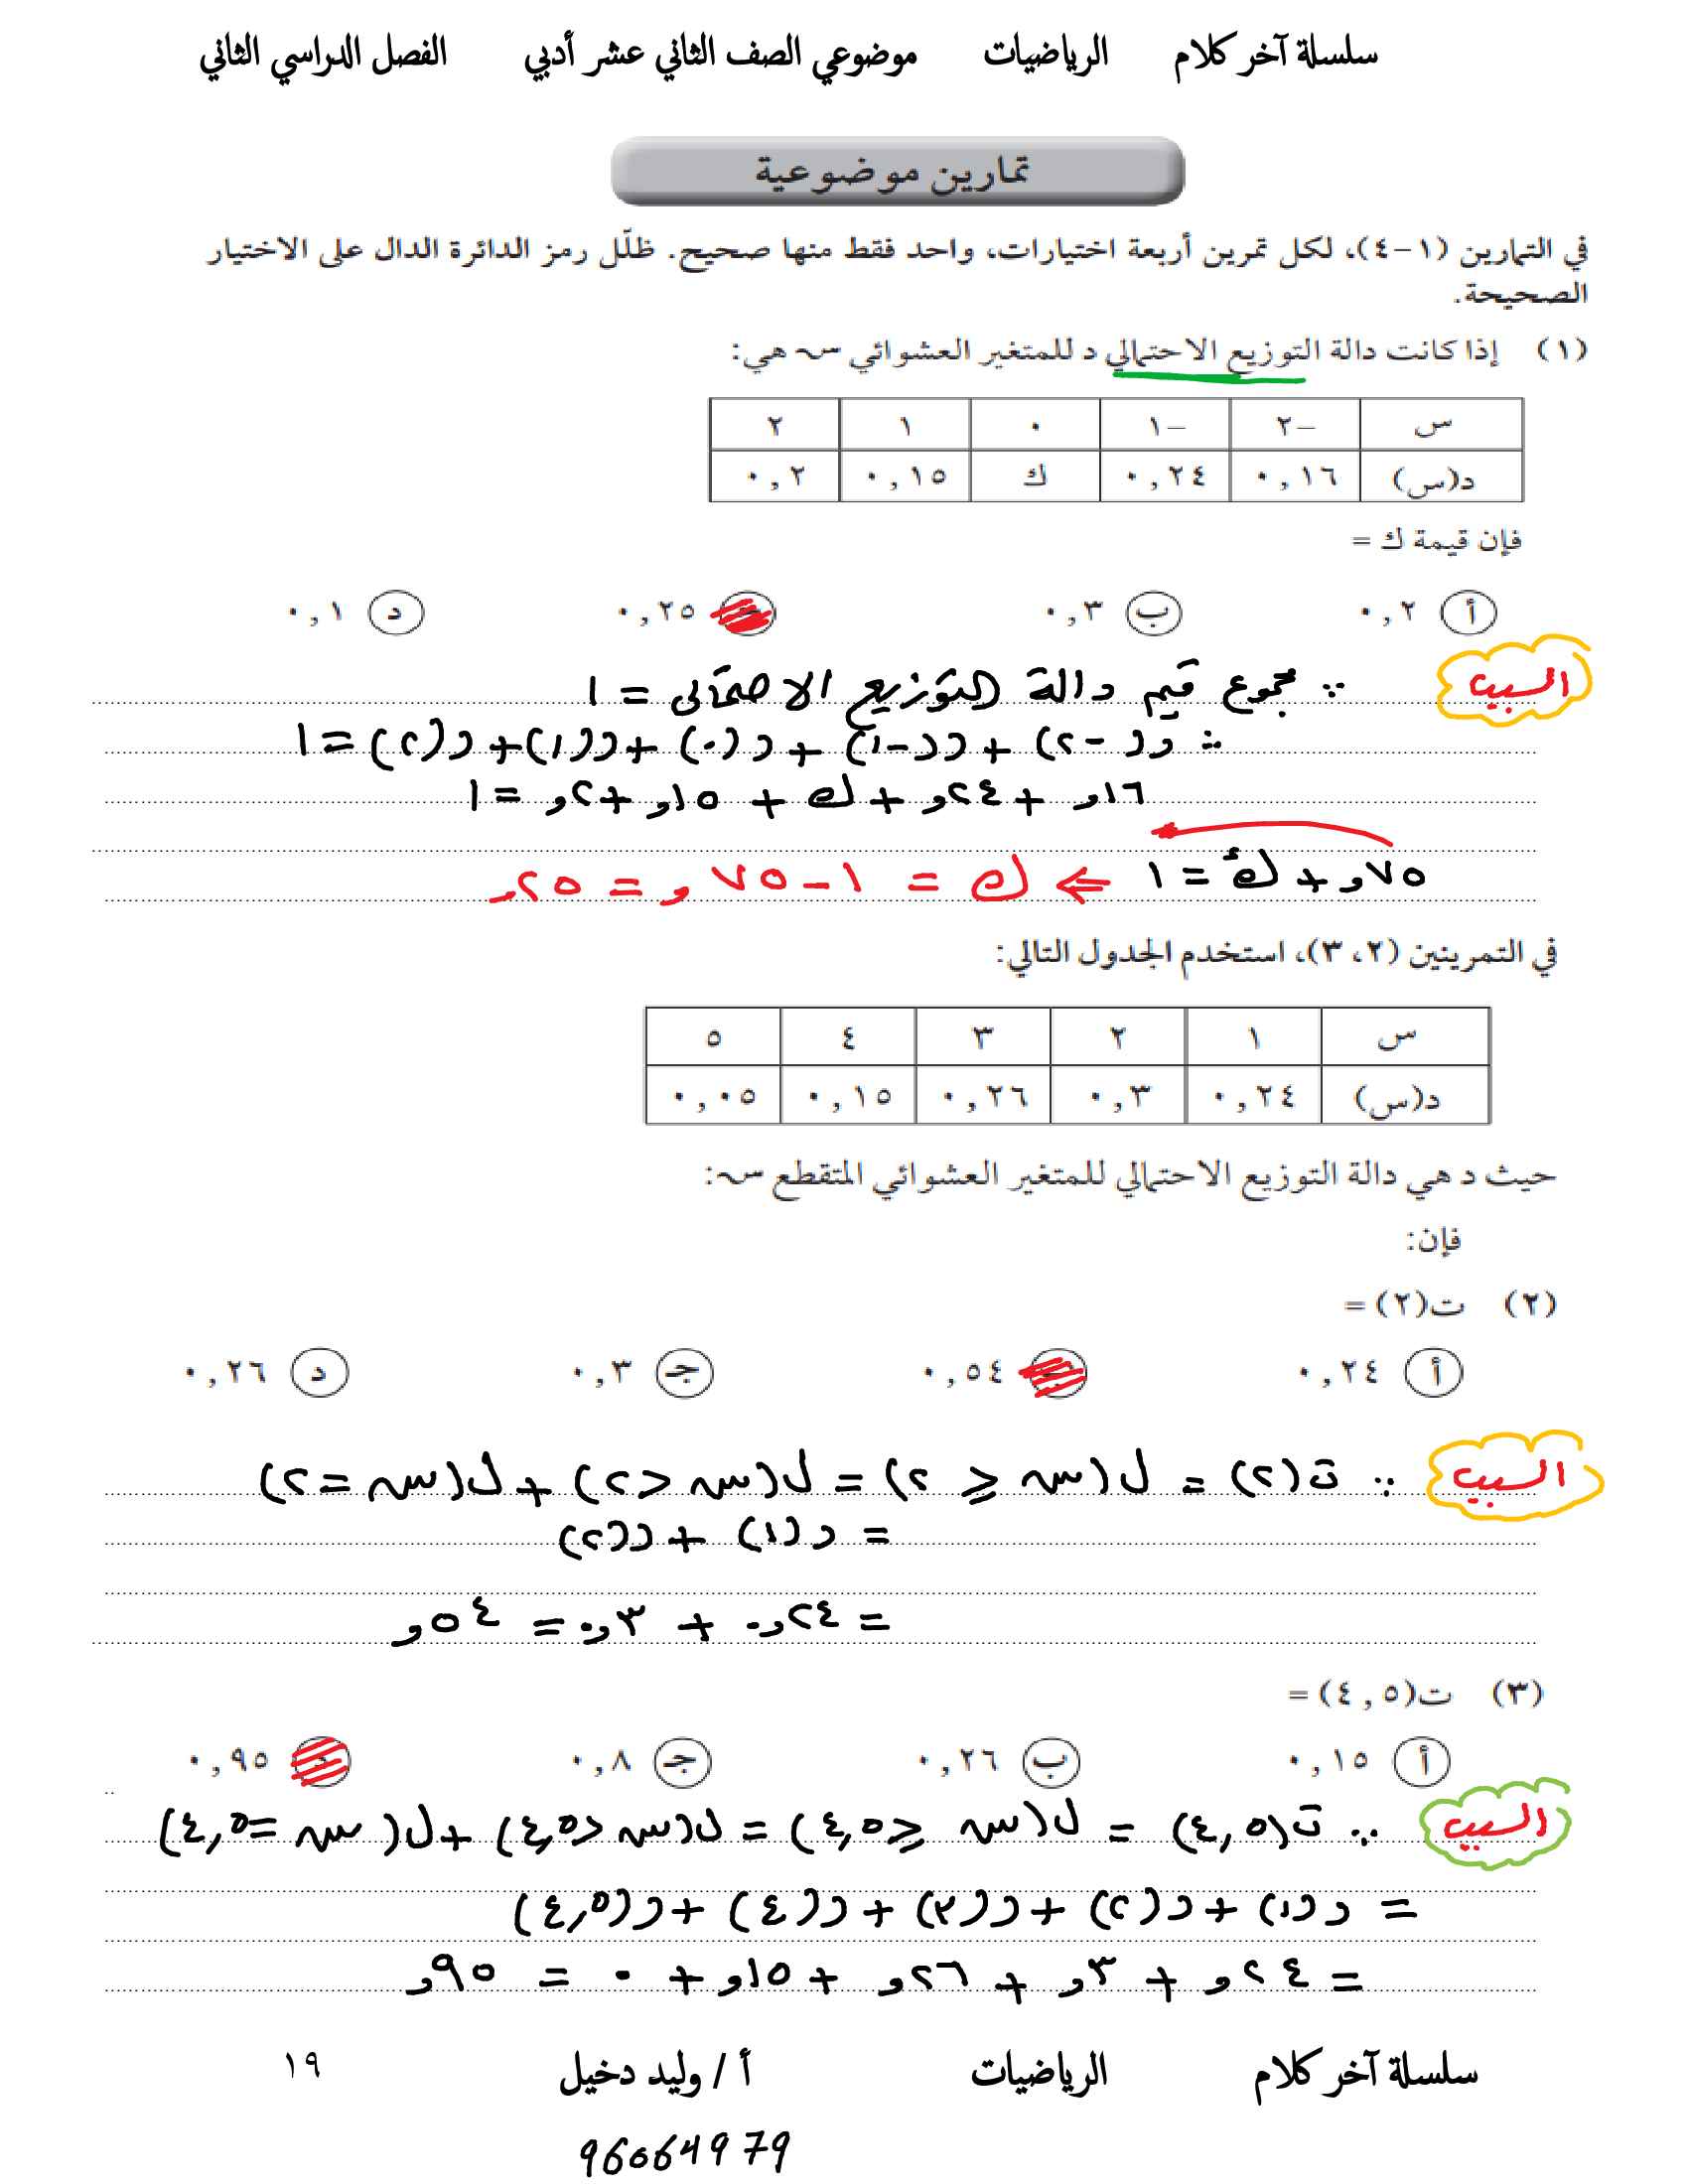 سلسلة آخر كلام الرياضيات موضوعي الصف الثاني عشر أدبي الفصل الدراسي الثاني
تمارين موضوعية
في التمارين (١-٤)، لكل تمرين أربعة اختيارات، واحد فقط منها صحيح. ظلّل رمز الدائرة الدال على الاختيار
الصحيحة.
(١) إذا كانت دالة التوزيع الاحتمالي د للمتغير العشوائي سـ هي:
س -٢ -١ ٠ ١ ٢
د(س) ٠,١٦ ٠,٢٤ ك ٠,١٥ ٠,٢
فإن قيمة ك =
أ ٠,٢ ب ٠,٣ ٠,٢٥ د ٠,١
السبب ∵ مجموع قيم دالة التوزيع الاحتمالى = ١
∴ د(-٢) + د(-١) + د(٠) + د(١) + د(٢) = ١
١٦و + ٢٤و + ك + ١٥و + ٢و = ١
٧٥و + ك = ١ ⇐ ك = ١ - ٧٥و = ٢٥و
في التمرينين (٢، ٣)، استخدم الجدول التالي:
س ١ ٢ ٣ ٤ ٥
د(س) ٠,٢٤ ٠,٣ ٠,٢٦ ٠,١٥ ٠,٠٥
حيث د هي دالة التوزيع الاحتمالي للمتغير العشوائي المتقطع سـ:
فإن:
(٢) ت(٢) =
أ ٠,٢٤ ب ٠,٥٤ جـ ٠,٣ د ٠,٢٦
السبب ∵ ت(٢) = ل(سـ ⩽ ٢) = ل(سـ < ٢) + ل(سـ = ٢)
= د(١) + د(٢)
= ٢٤و٠ + ٣و٠ = ٥٤و
(٣) ت(٤,٥) =
أ ٠,١٥ ب ٠,٢٦ جـ ٠,٨ د ٠,٩٥
السبب ∵ ت(٤,٥) = ل(سـ ⩽ ٤,٥) = ل(سـ < ٤,٥) + ل(سـ = ٤,٥)
= د(١) + د(٢) + د(٣) + د(٤) + د(٤,٥)
= ٢٤و + ٣و + ٢٦و + ١٥و + ٠ = ٩٥و
سلسلة آخر كلام الرياضيات أ / وليد دخيل ١٩
96064979